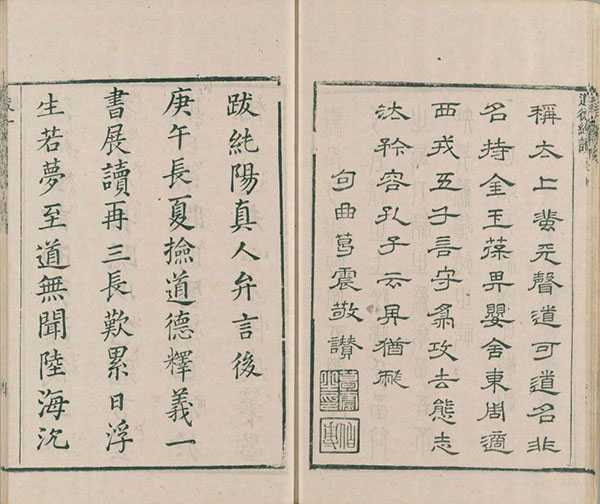 稱太上 无聲道可道名非
名持金玉葆 嬰舍東周適
西戎五千言守 攻去態志
容孔子云 猶
句曲葛震敬讚
跋純陽真人弁言後
庚午長夏撿道德釋義一
書展讀再三長歎累日浮
生若夢至道無聞陸海沉